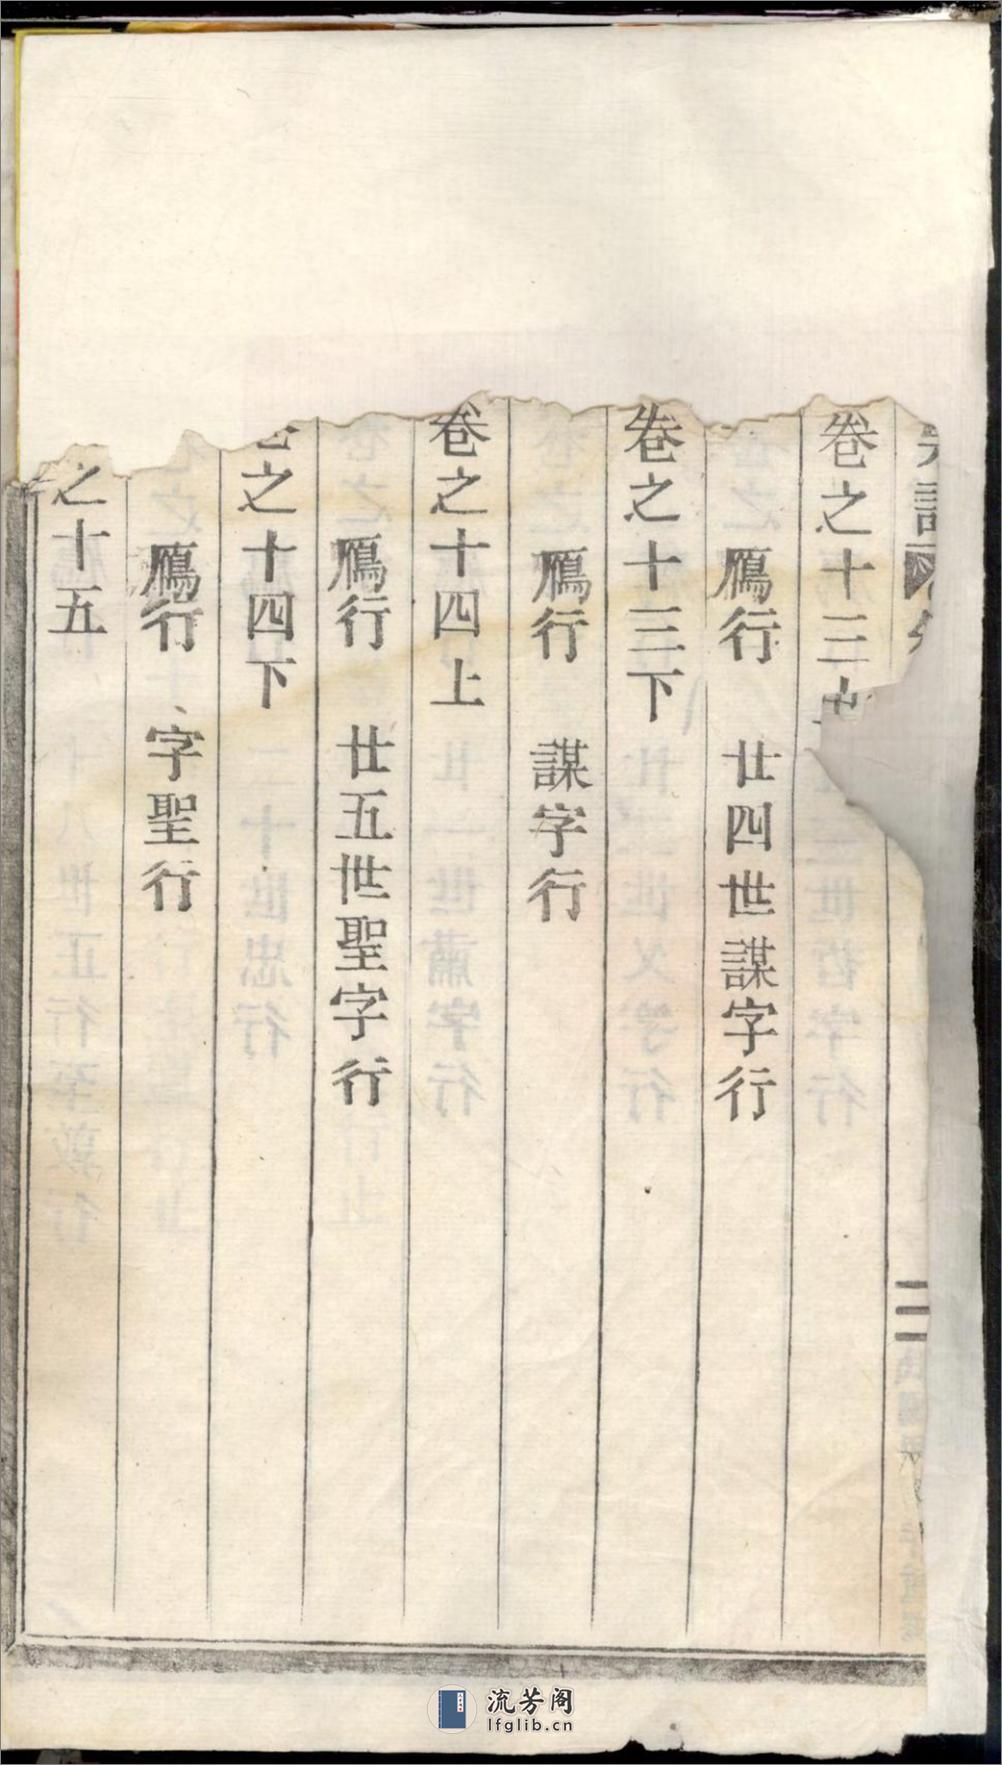 譜
卷之十三
鴈行 廿四世謀字行
卷之十三下
鴈行 謀字行
卷之十四上
鴈行 廿五世聖字行
之十四下
鴈行 字聖行
之十五
二
流芳阁
lfglib.cn